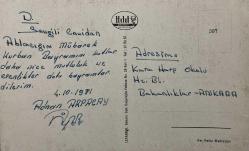 D.
Sevgili Cavidan
Ablacığım Mübarek
Kurban Bayramını kutlar
daha nice mutluluk ve
esenlikler dolu bayramlar
dilerim.
4.10.1981
Adnan ARPACAY
Adresim:
Kara Harp Okulu
Hz. Bl.
Bakanlıklar-ANKARA